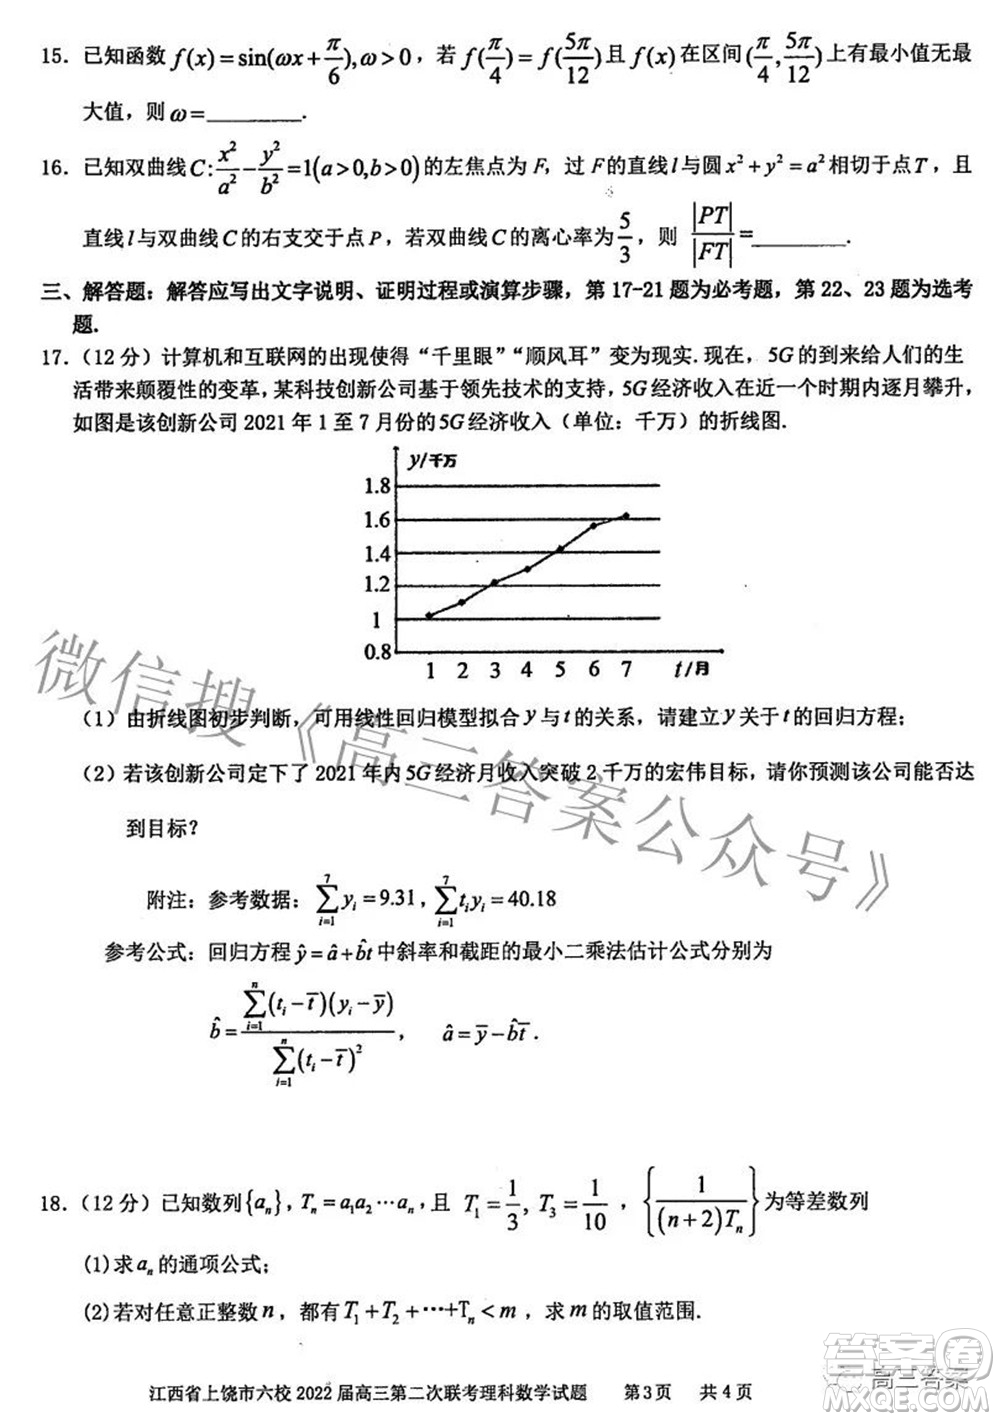 15．已知函数 f(x)=sin(ωx+π/6),ω>0，若 f(π/4)=f(5π/12)且 f(x) 在区间(π/4,5π/12)上有最小值无最
大值，则 ω=________.
16．已知双曲线 C:x²/a²-y²/b²=1(a>0,b>0)的左焦点为 F，过 F的直线 l 与圆 x²+y²=a² 相切于点 T，且
直线 l 与双曲线 C 的右支交于点 P，若双曲线 C 的离心率为 5/3，则 |PT|/|FT|=________.
三、解答题：解答应写出文字说明、证明过程或演算步骤，第 17-21 题为必考题，第 22、23 题为选考
题.
17．（12 分）计算机和互联网的出现使得“千里眼”“顺风耳”变为现实.现在，5G 的到来给人们的生
活带来颠覆性的变革，某科技创新公司基于领先技术的支持，5G 经济收入在近一个时期内逐月攀升，
如图是该创新公司 2021 年 1 至 7 月份的 5G 经济收入（单位：千万）的折线图.
y/千万
1.8
1.6
1.4
1.2
1
0.8
1 2 3 4 5 6 7 t/月
（1）由折线图初步判断，可用线性回归模型拟合 y 与 t 的关系，请建立 y 关于 t 的回归方程；
（2）若该创新公司定下了 2021 年内 5G 经济月收入突破 2 千万的宏伟目标，请你预测该公司能否达
到目标？
附注：参考数据：∑_{i=1}^{7} y_i=9.31，∑_{i=1}^{7} t_i y_i=40.18
参考公式：回归方程 ŷ=â+b̂t 中斜率和截距的最小二乘法估计公式分别为
b̂=∑_{i=1}^{n}(t_i-t̄)(y_i-ȳ)/∑_{i=1}^{n}(t_i-t̄)²，　â=ȳ-b̂t̄ .
18．（12 分）已知数列{a_n}，T_n=a_1a_2⋯a_n，且 T_1=1/3, T_3=1/10，{1/((n+2)T_n)}为等差数列
(1)求 a_n 的通项公式；
(2)若对任意正整数 n，都有 T_1+T_2+⋯+T_n<m，求 m 的取值范围.
江西省上饶市六校 2022 届高三第二次联考理科数学试题　第 3 页　共 4 页
微信搜《高三答案公众号》
高三答案
答案卷